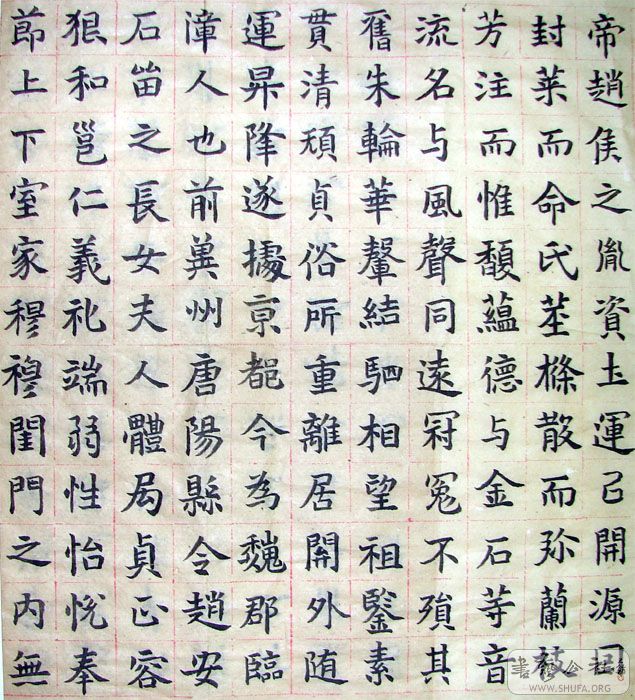 帝趙侯之胤資土運已開源
封萊而命氏莖條散而弥蘭
芳注而惟馥蘊德与金石等音
流名与風聲同遠冠冕不殞其
舊朱輪華轂結駟相望祖鑒素
貫清頑貞俗所重離居關外随
運昇降遂據京都今為魏郡臨
漳人也前冀州唐陽縣令趙安
石苗之長女夫人體局貞正容
狠和邕仁義礼端弱性怡悅奉
節上下室家穆穆閨門之内無
WWW.SHUFA.ORG